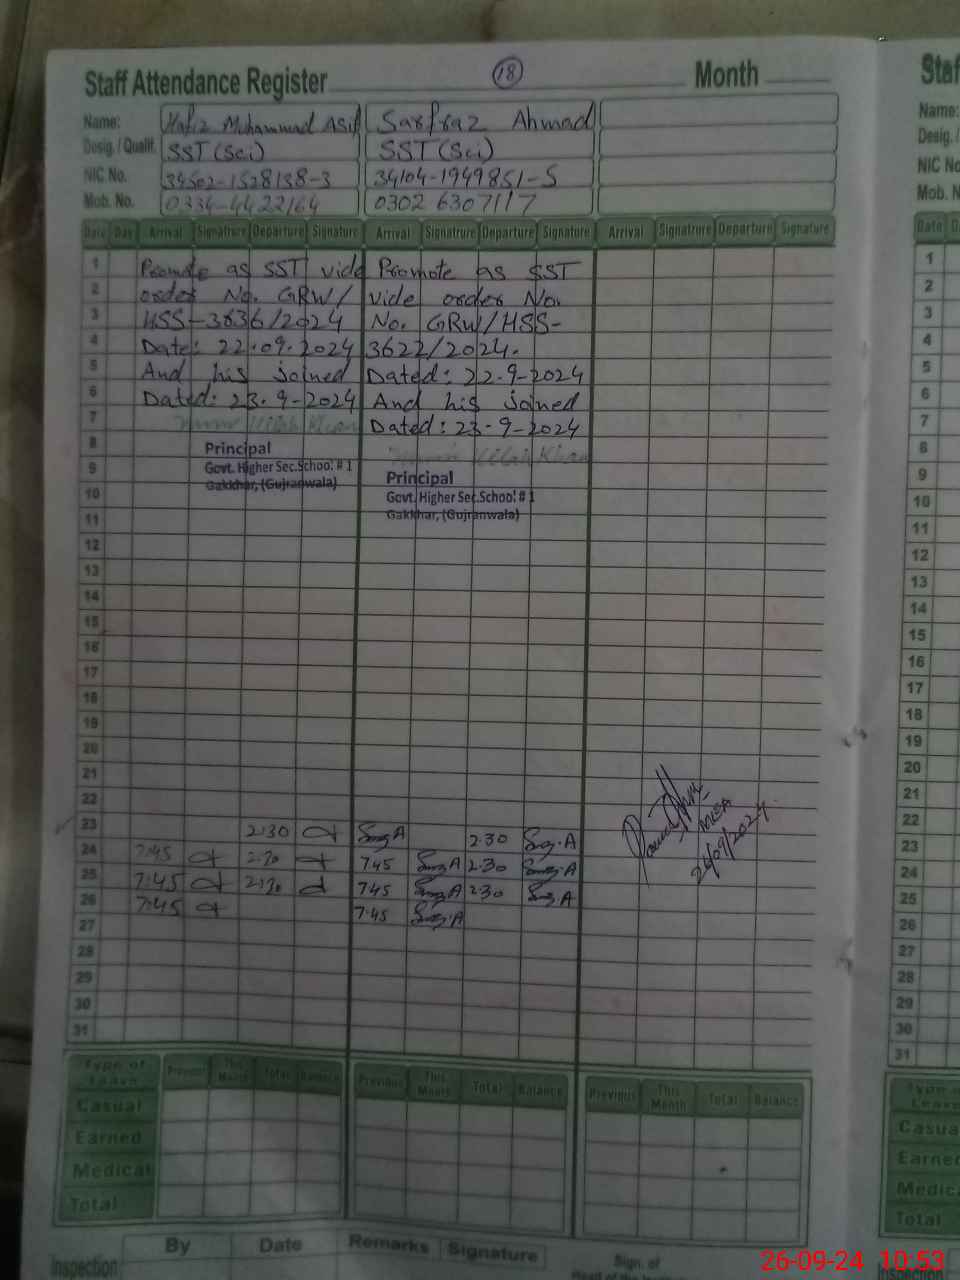 Staff Attendance Register 18 Month
Name: Hafiz Muhammad Asif Sarfraz Ahmad
Desig. / Qualif. SST (Sci) SST (Sci)
NIC No. 34502-1528138-3 34104-1949851-5
Mob. No. 0334-4422164 0302 6307117
Date Day Arrival Signatrure Departure Signature Arrival Signatrure Departure Signature Arrival Signatrure Departure Signature
1 Promote as SST vide Promote as SST
2 order No. GRW/ vide order No.
3 HSS-3836/2024 No. GRW/HSS-
4 Date: 22.09.2024 3622/2024.
5 And his joined Dated: 22-9-2024
6 Dated: 23-9-2024 And his joined
7 Dated: 23-9-2024
8 Principal
9 Govt. Higher Sec.School # 1 Principal
10 Gakkhar, (Gujranwala) Govt. Higher Sec.School # 1
11 Gakkhar, (Gujranwala)
12
13
14
15
16
17
18
19
20
21
22
23 2:30 2.30
24 7:45 2:30 7.45 2.30
25 7:45 2:30 7.45 2.30
26 7:45 7.45
27
28
29
30
31
MEA
26/09/2024
Type of Leave Previous This Month Total Balance Previous This Month Total Balance Previous This Month Total Balance
Casual
Earned
Medical
Total
Inspection By Date Remarks Signature Sign. of
Staf
Name:
Desig. /
NIC No
Mob. N
Date
1
2
3
4
5
6
7
8
9
10
11
12
13
14
15
16
17
18
19
20
21
22
23
24
25
26
27
28
29
30
31
Casua
Earne
Medic
Total
26-09-24 10:53